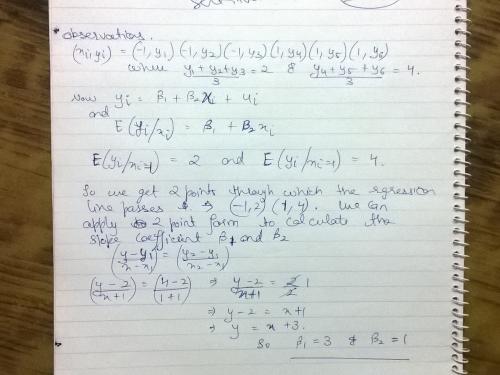 * observations.
(xi, yi) = (-1, y1) (-1, y2) (-1, y3) (1, y4) (1, y5) (1, y6)
where (y1 + y2 + y3)/3 = 2 & (y4 + y5 + y6)/3 = 4.
Now yi = β1 + β2 xi + ui
and
E(yi/xi) = β1 + β2 xi
E(yi/xi=1) = 2 and E(yi/xi=1) = 4.
So we get 2 points through which the rgression
line passes → (-1, 2) (1, 4). We can
apply 2 point form to calculate the
slope coefficient β1 and β2
(y - y1)/(x - x1) = (y2 - y1)/(x2 - x1)
(y - 2)/(x + 1) = (4 - 2)/(1 + 1) ⇒ (y - 2)/(x + 1) = 2/2 1
⇒ y - 2 = x + 1
⇒ y = x + 3.
So β1 = 3 & β2 = 1